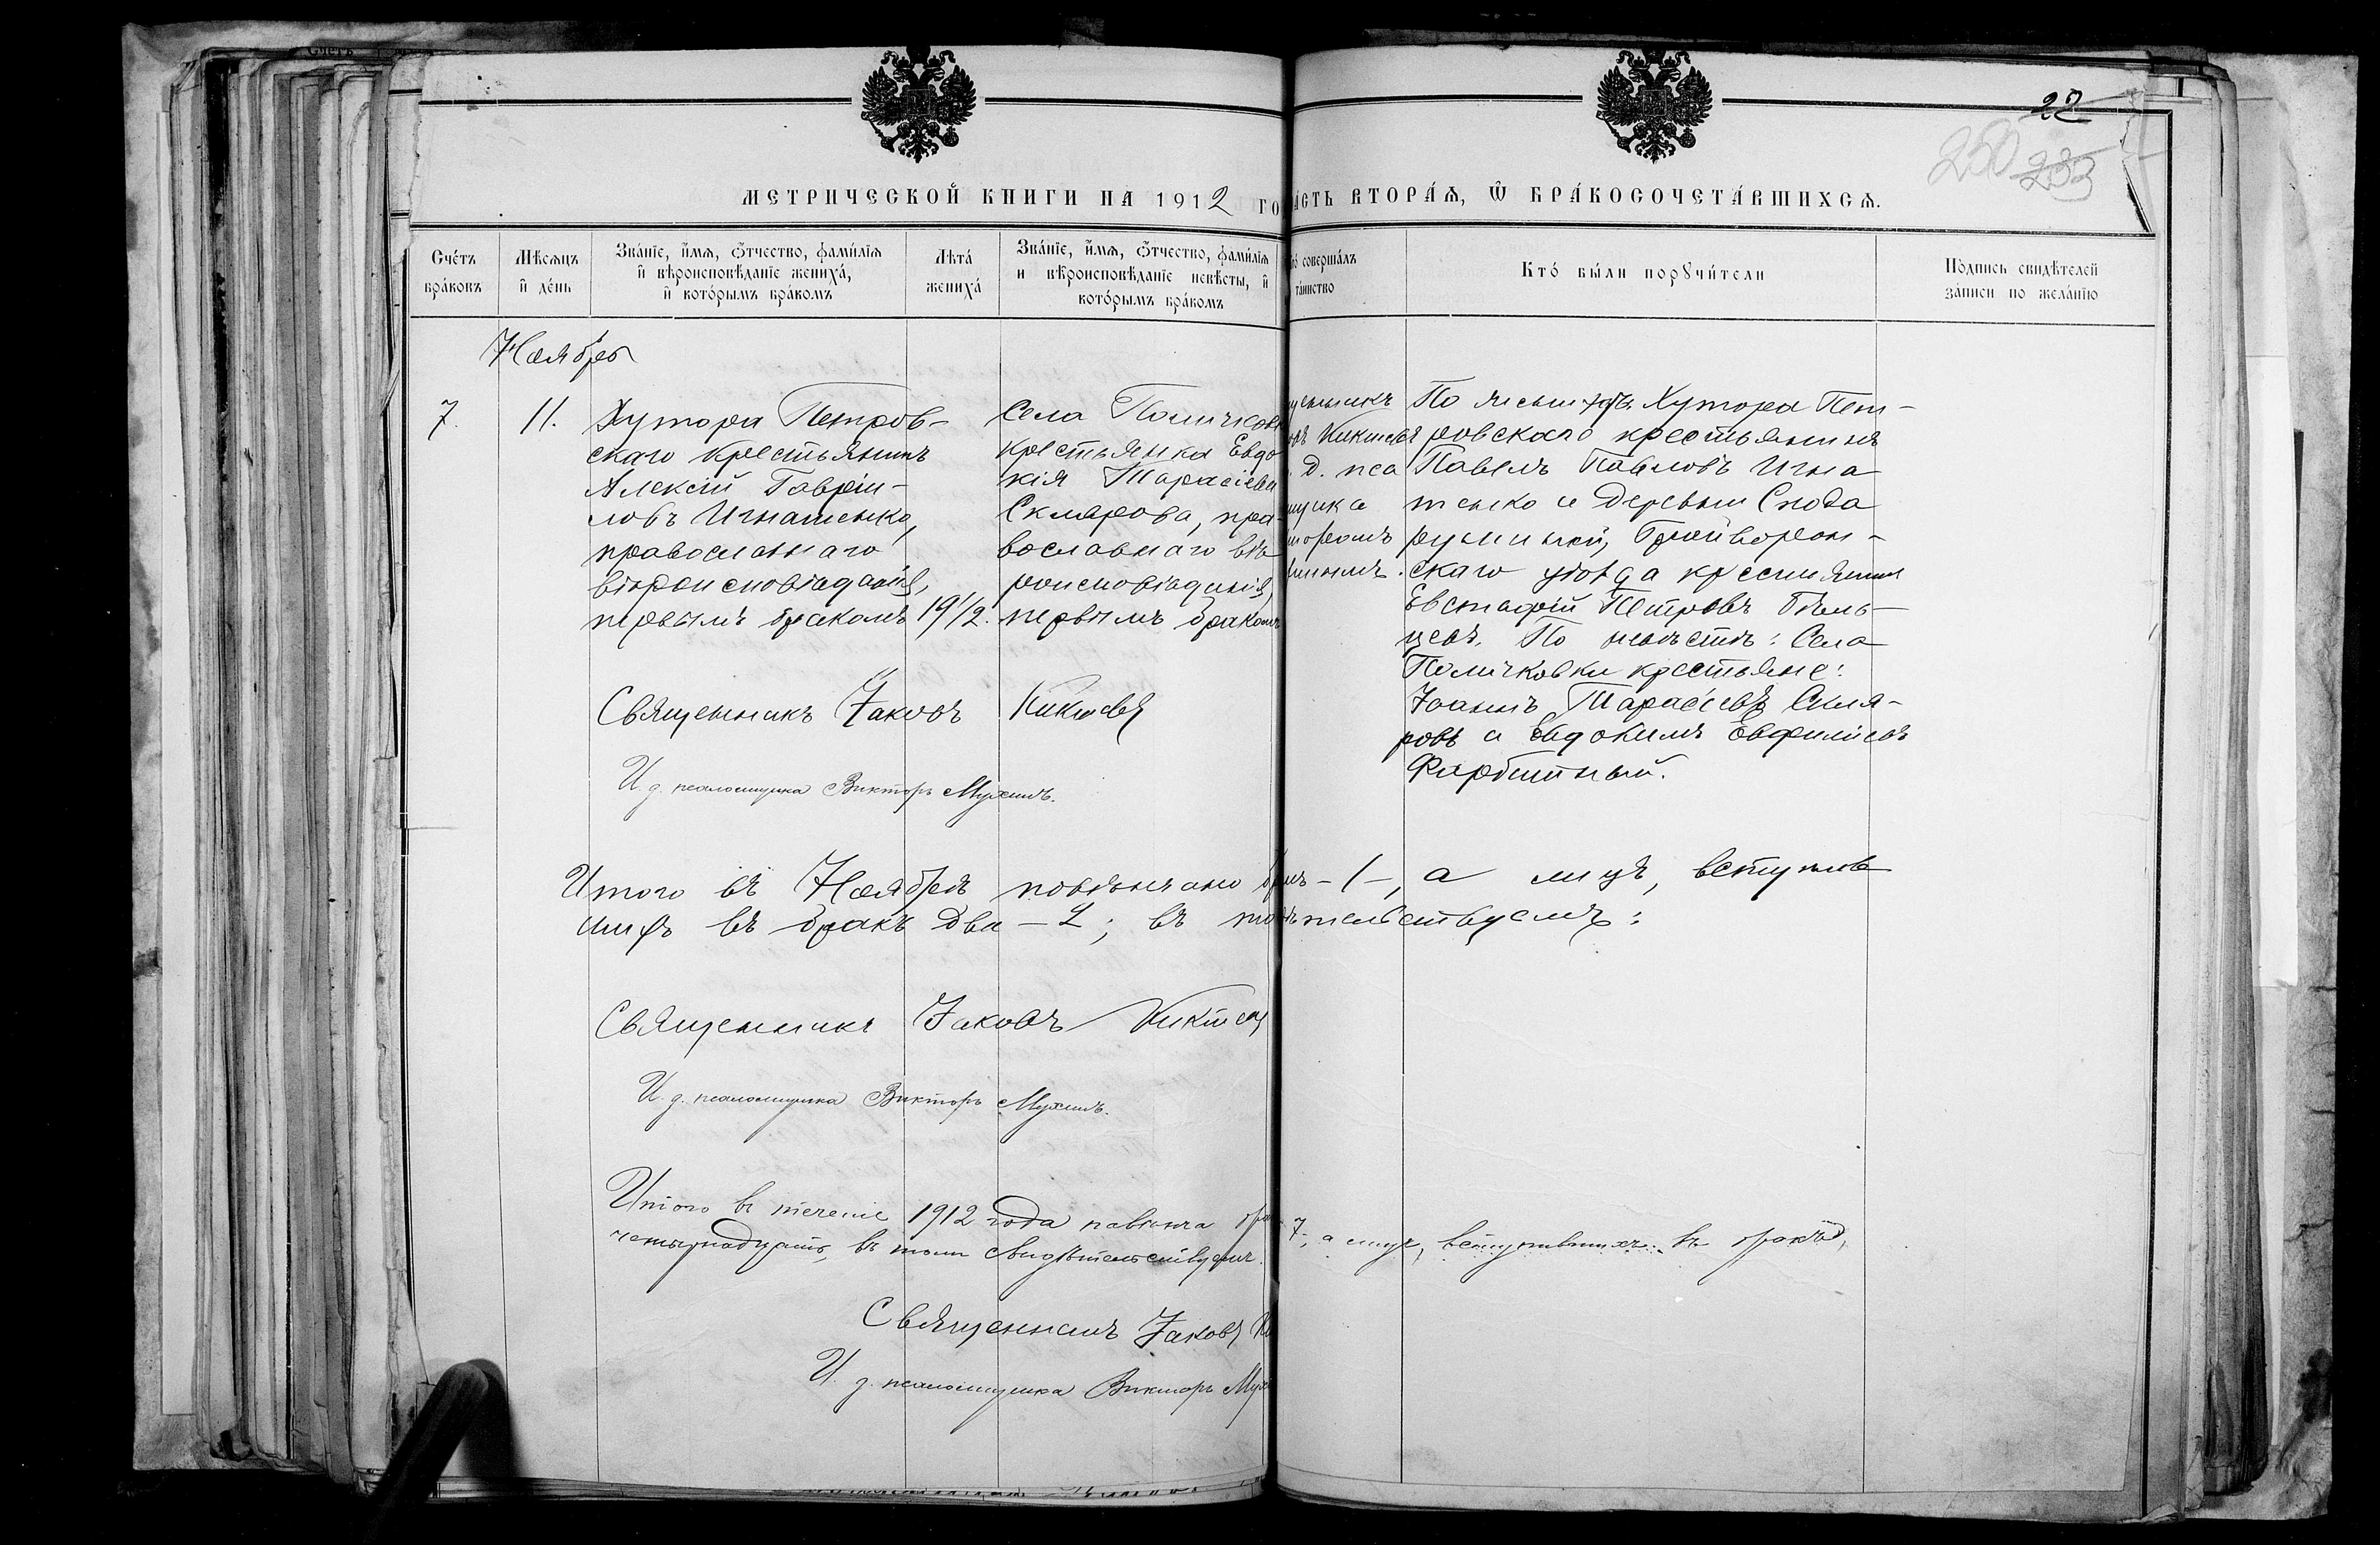 22
250 233
МЕТРИЧЕСКОЙ КНИГИ НА 1912 ГО
АСТЬ ВТОРАѦ, Ѿ БРАКОСОЧЕТАВШИХСѦ.
Счетъ браковъ
Мѣсѧцъ и день
Званіе, имѧ, ѻтчество, фамиліѧ и вѣроисповѣданіе жениха, и которымъ бракомъ
Лѣта жениха
Званіе, имѧ, ѻтчество, фамиліѧ и вѣроисповѣданіе невѣсты, и которымъ бракомъ
то совершалъ таинство
Кто были порꙋчители
Подпись свидѣтелей записи по желанію
Ноября
7.
11.
Хутора Петров-
скаго крестьянинъ
Алексій Гавріи-
ловъ Игнатенко,
православнаго
вѣроисповѣданія,
первымъ бракомъ
19½.
Села Поличков
крестьянка Евдо
кія Тарасіева
Склярова, пра-
вославнаго вѣ
роисповѣданія,
первымъ бракомъ
щенникъ
въ Никитевъ
. д. пса
мщика
торомъ
хинымъ.
По женихѣ: Хутора Пет-
ровскаго крестьянинъ
Павелъ Павловъ Игна
тенко и деревни Слода
рушиной, Грайворон-
скаго уѣзда крестьянин
Евстафій Петровъ Бѣль-
цевъ. По невѣстѣ: Села
Поличковки крестьяне:
Іоаннъ Тарасіевъ Скля-
ровъ и Евдокимъ Евфиміевъ
Фарбитный.
Священникъ Іаковъ Никитевъ
И. д. псаломщика Викторъ Мухинъ.
Итого въ Ноябрѣ повѣнчано бр
къ -1-, а лицъ, вступив
шихъ въ бракъ два - 2; въ том
ѣтельствуемъ:
Священникъ Іаковъ Никитев
И. д. псаломщика Викторъ Мухинъ.
Итого въ теченіе 1912 года повѣнча бра
7-, а лицъ, вступившихъ въ бракъ,
четырнадцать, въ томъ свидѣтельствуемъ.
Священникъ Іаковъ Ни
И. д. псаломщика Викторъ Мух